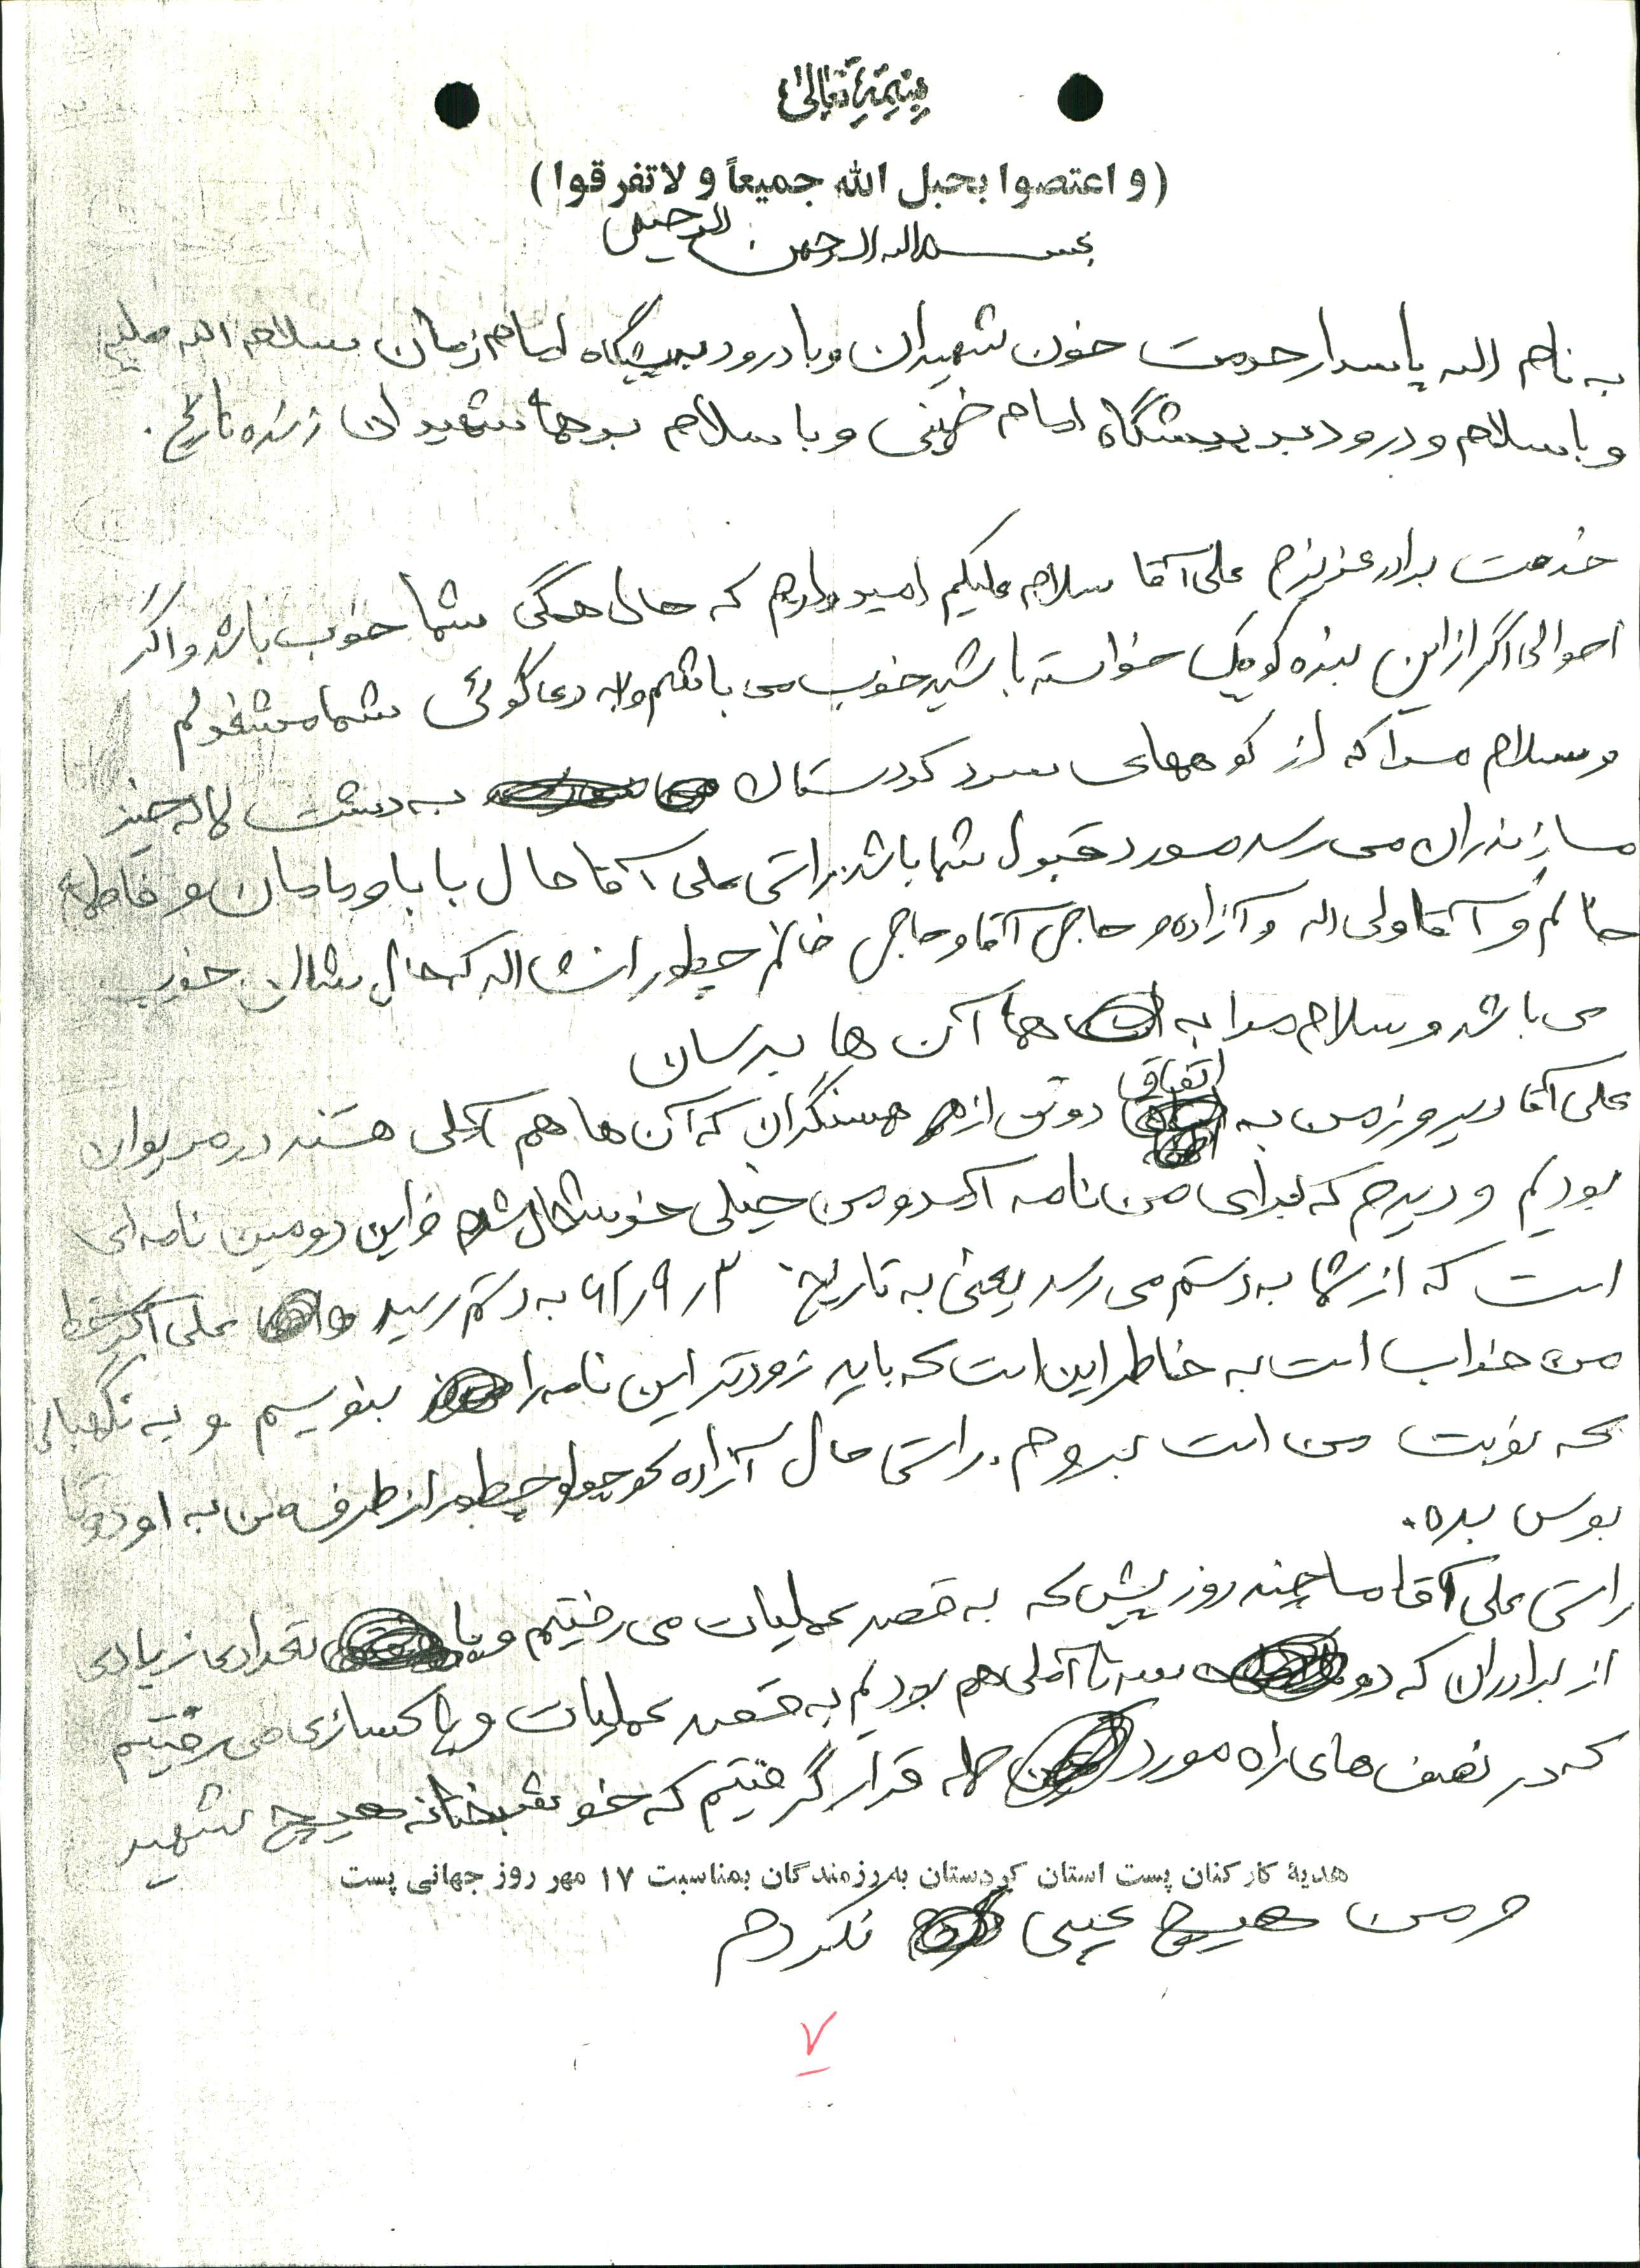 بسمه تعالی
(و اعتصوا بحبل الله جمیعاً و لاتفرقوا)
بسم اله الرحمن الرحیم
به نام اله پاسدار حرمت خون شهیدان و با درود بپیشگاه امام زمان سلام اله علیه
و با سلام و درود بر پیشگاه امام خمینی و با سلام بر هما شهیدان زنده تاریخ.
خدمت برادر عزیزم علی آقا سلام علیکم امیدوارم که حال همگی شما خوب باشد و اگر
احوالی اگر از این بنده کوچک خواسته باشید خوب می باشم و به دعا گوئی شما مشغولم
و سلام مرا که از کوههای سرد کردستان به دشت لاله خیز
مازندران می رسد مورد قبول شما باشد. راستی علی آقا حال بابا و مامان و فاطمه
خانم و آقا ولی اله و آزاده و حاجی آقا و حاجی خانم چطور انشااله که حال شان خوب
می باشد و سلام مرا به هما آن ها برسان
علی آقا دیروز من به اتفاق دو تن از هم سنگران که آن ها هم آملی هستند در مریوان
بودیم و دیدم که برای من نامه آمد و من خیلی خوشحال شدم و این دومین نامه ای
است که از شما به دستم می رسد یعنی به تاریخ ۶۱/۹/۳ به دستم رسید علی آقا خط
من خراب است به خاطر این است که باید زودتر این نامه را بنویسم و به نگهبانی
که نوبت من است بروم. راستی حال آزاده کوچولو چطور از طرف من به او دو تا
بوس بده.
راستی علی آقا ما چند روز پیش که به قصد عملیات می رفتیم و با تعدادی زیادی
از برادران که سه تا آملی هم بودیم به قصد عملیات و پاکسازی می رفتیم
که در نصف های راه مورد حمله قرار گرفتیم که خوشبختانه هیچ شهید
هدیهٔ کارکنان پست استان کردستان به رزمندگان بمناسبت ۱۷ مهر روز جهانی پست
و من هیچ عیبی نکردم
۷